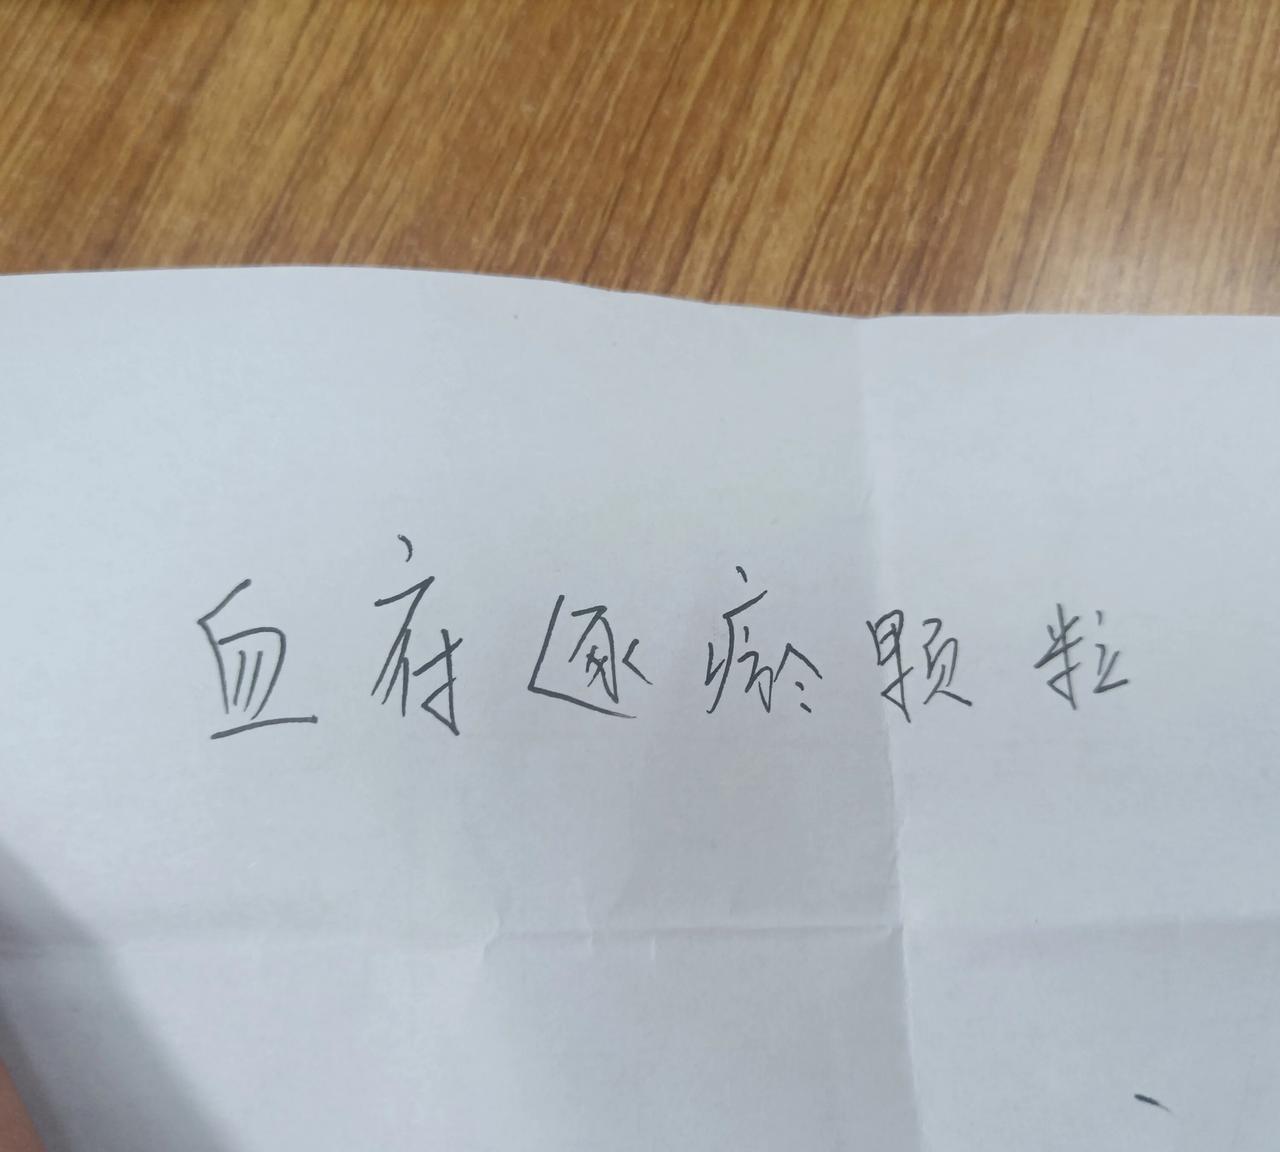 血府逐瘀颗粒